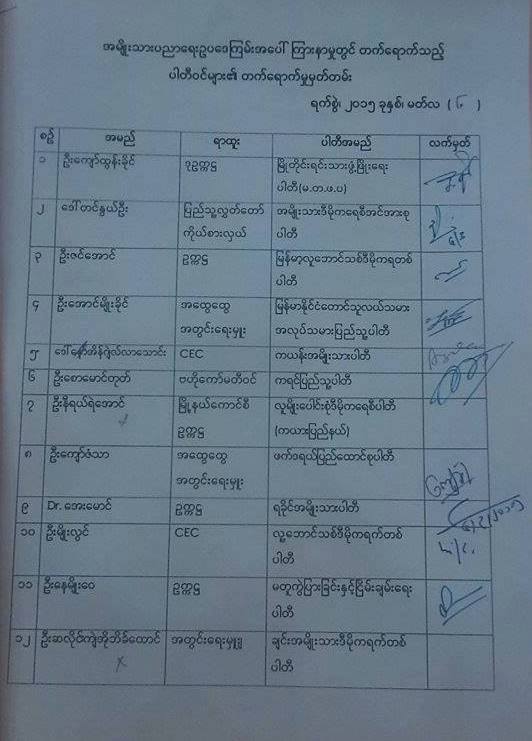 အမျိုးသားပညာရေးဥပဒေကြမ်းအပေါ် ကြားနာမှုတွင် တက်ရောက်သည့်
ပါတီဝင်များ၏ တက်ရောက်မှုမှတ်တမ်း
ရက်စွဲ၊ ၂၀၁၅ ခုနှစ်၊ မတ်လ ( ၆ )
စဉ် အမည် ရာထူး ပါတီအမည် လက်မှတ်
၁ ဦးကျော်ထွန်းခိုင် ဒုဥက္ကဋ္ဌ မြိုတိုင်းရင်းသားဖွံ့ဖြိုးရေး
ပါတီ(မ.တ.ဖ.ပ)
၂ ဒေါ်တင်နွယ်ဦး ပြည်သူ့လွှတ်တော် အမျိုးသားဒီမိုကရေစီအင်အားစု
ကိုယ်စားလှယ် ပါတီ
၃ ဦးဇင်အောင် ဥက္ကဋ္ဌ မြန်မာ့လူဘောင်သစ်ဒီမိုကရတစ်
ပါတီ
၄ ဦးအောင်မျိုးခိုင် အထွေထွေ မြန်မာနိုင်ငံတောင်သူလယ်သမား
အတွင်းရေးမှူး အလုပ်သမားပြည်သူ့ပါတီ
၅ CEC ကယန်းအမျိုးသားပါတီ
၆ ဦးစောမောင်တုတ် ဗဟိုကော်မတီဝင် ကရင်ပြည်သူ့ပါတီ
၇ ဦးနီရယ်ရဲအောင် မြို့နယ်ကောင်စီ လူမျိုးပေါင်းစုံဒီမိုကရေစီပါတီ
ဥက္ကဋ္ဌ (ကယားပြည်နယ်)
၈ ဦးကျော်ဇံသာ အထွေထွေ ဖက်ဒရယ်ပြည်ထောင်စုပါတီ
အတွင်းရေးမှူး
၉ Dr. အေးမောင် ဥက္ကဋ္ဌ ရခိုင်အမျိုးသားပါတီ
၁၀ ဦးမျိုးလွင် CEC လူ့ဘောင်သစ်ဒီမိုကရက်တစ်
ပါတီ
၁၁ ဦးနေမျိုးဝေ ဥက္ကဋ္ဌ မတူကွဲပြားခြင်းနှင့်ငြိမ်းချမ်းရေး
ပါတီ
၁၂ အတွင်းရေးမှူး ချင်းအမျိုးသားဒီမိုကရက်တစ်
x ပါတီ